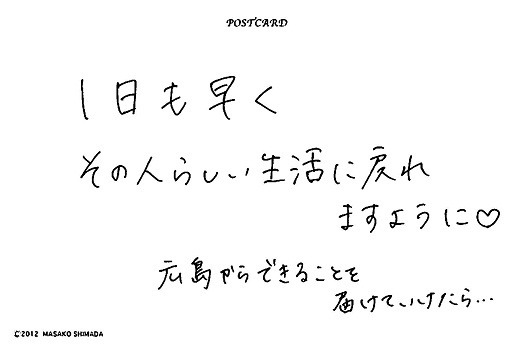 POSTCARD
1日も早く
その人らしい生活に戻れ
ますように♡
広島からできることを
届けていけたら…
©2012 MASAKO SHIMADA